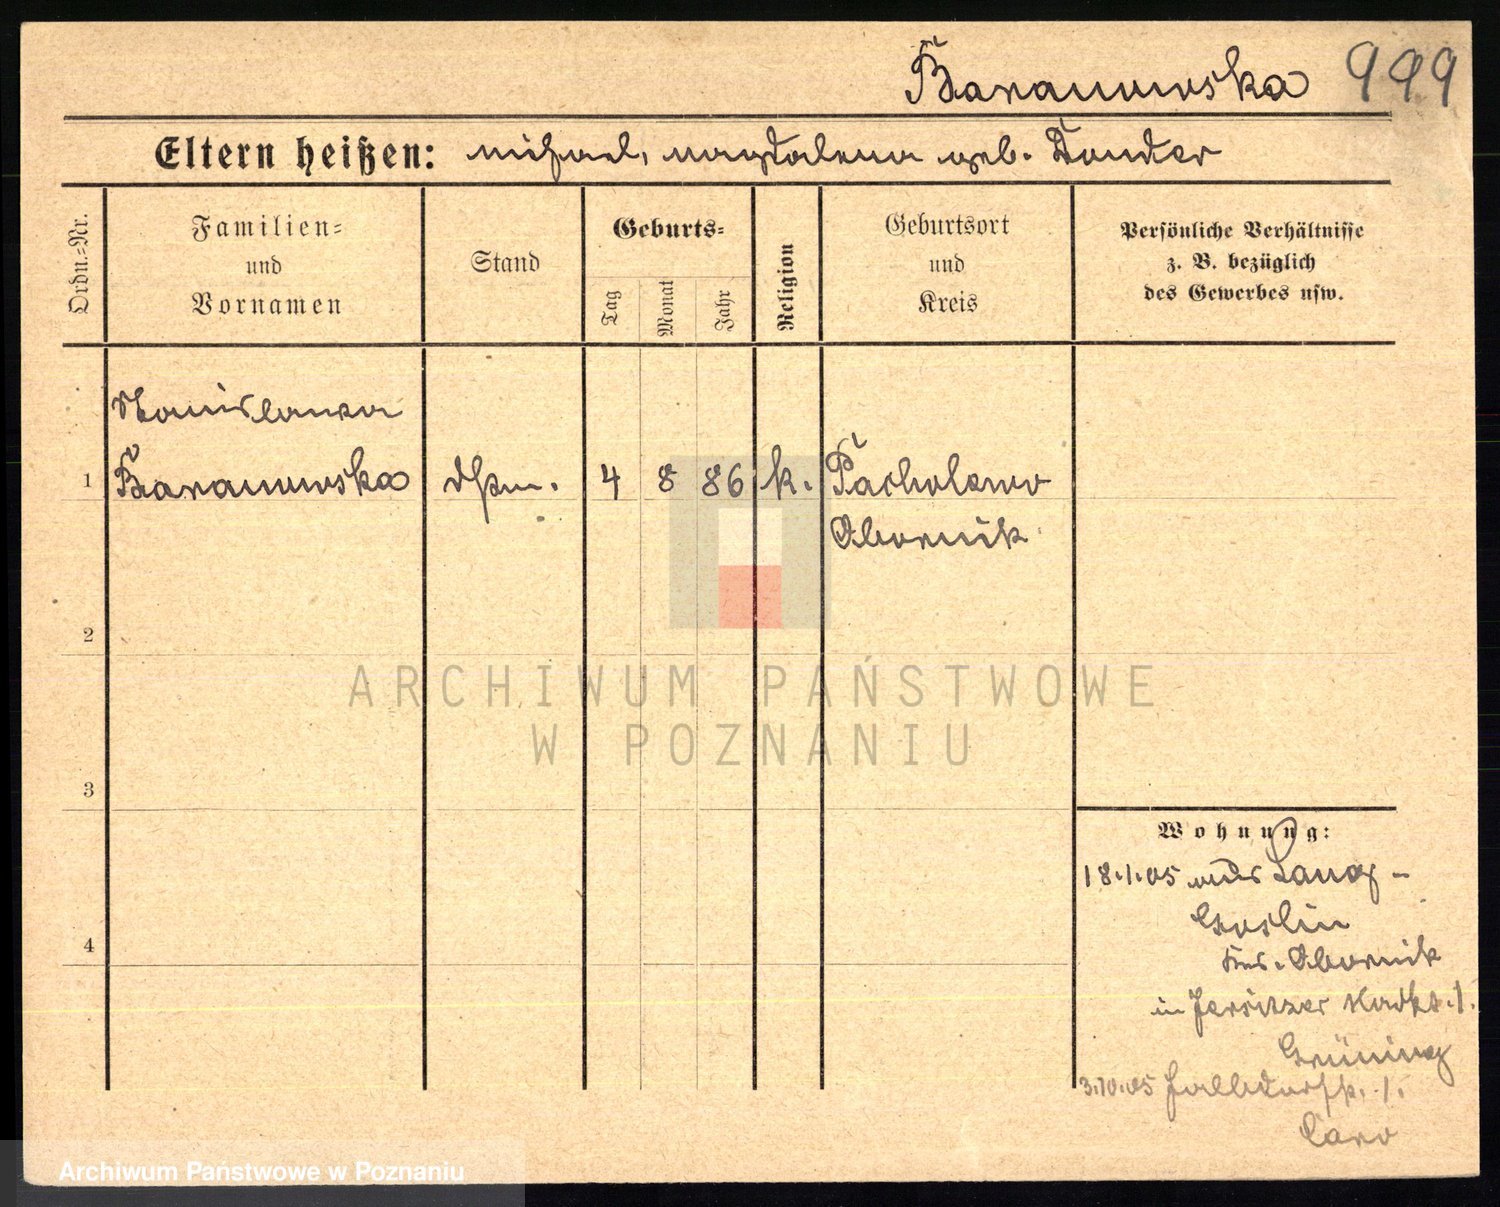 Baranowska 999
Eltern heißen: Michael, Magdalena geb. Donder
Ordn.=Nr.
Familien=
und
Vornamen
Stand
Geburts=
Tag
Monat
Jahr
Religion
Geburtsort
und
Kreis
Persönliche Verhältnisse
z. B. bezüglich
des Gewerbes usw.
Stanislawa
1 Baranowska 4 8 86 k. Pacholewo
Obornik
2
ARCHIWUM PAŃSTWOWE
W POZNANIU
3
Wohnung:
4
18.1.05 aus Lang-
Goslin
Krs. Obornik
in Jersitzer 1.
Grüning
3.10.05 1.
Caro
Archiwum Państwowe w Poznaniu